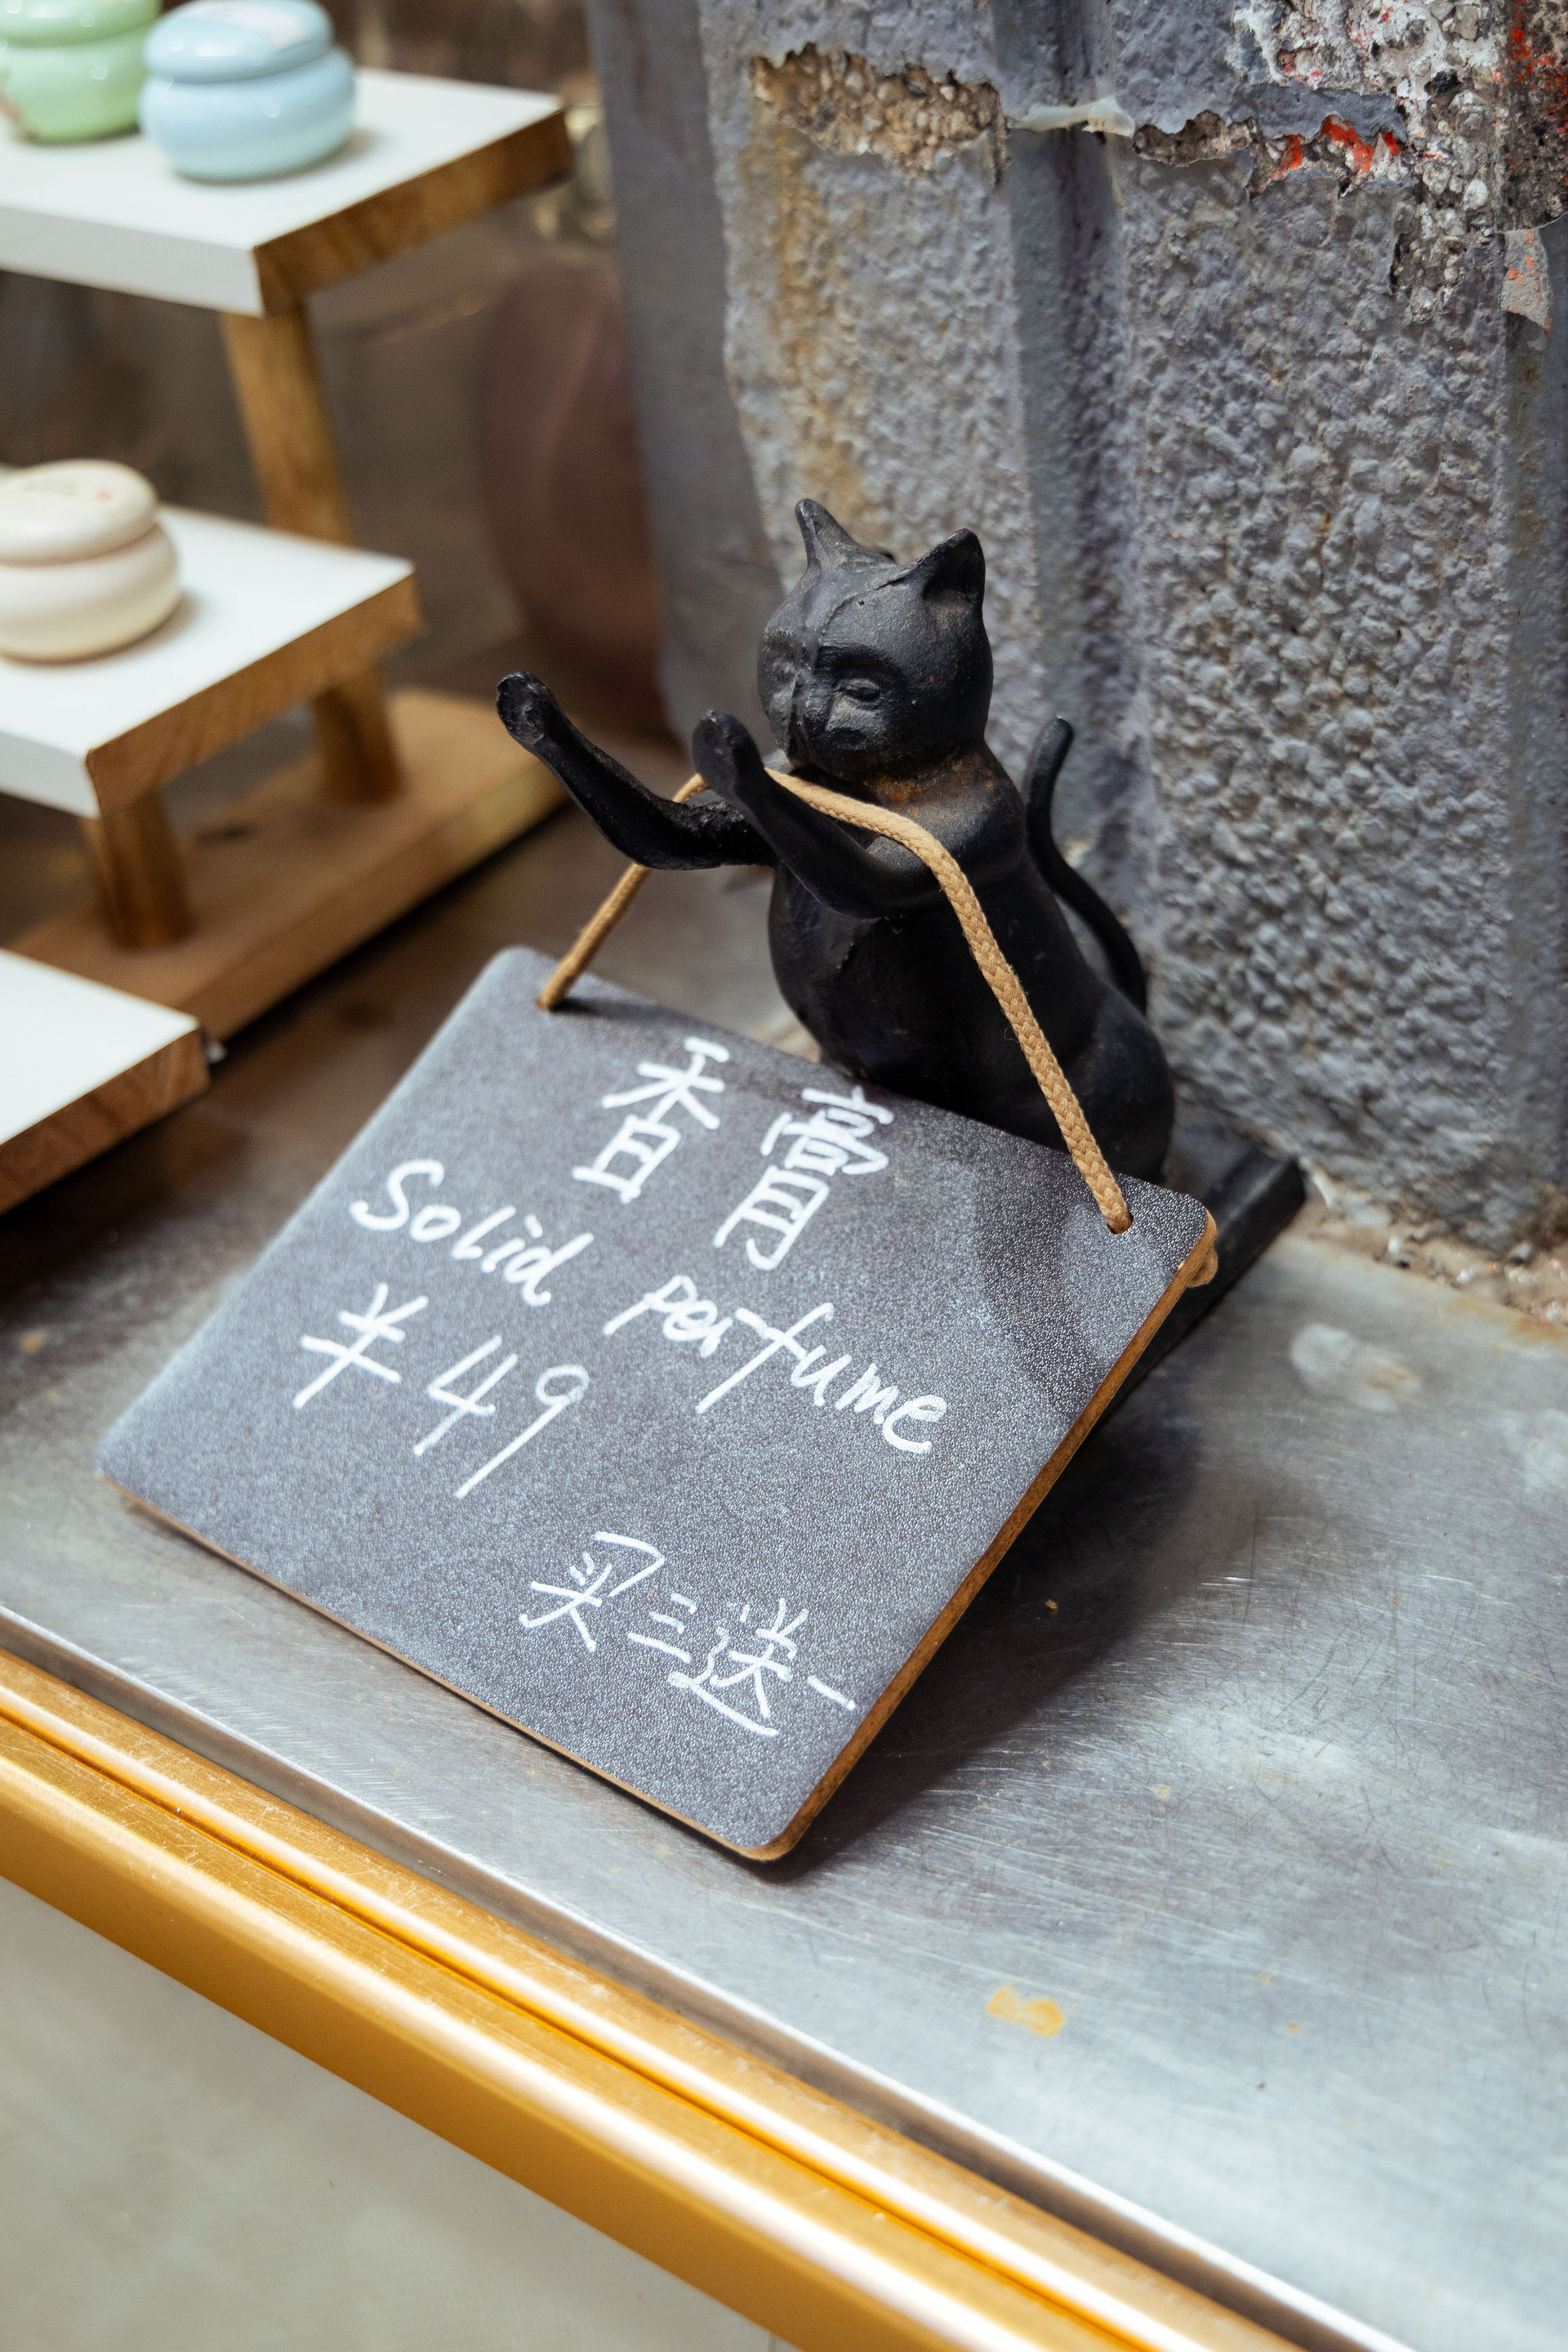 香膏
Solid perfume
¥49
买三送一